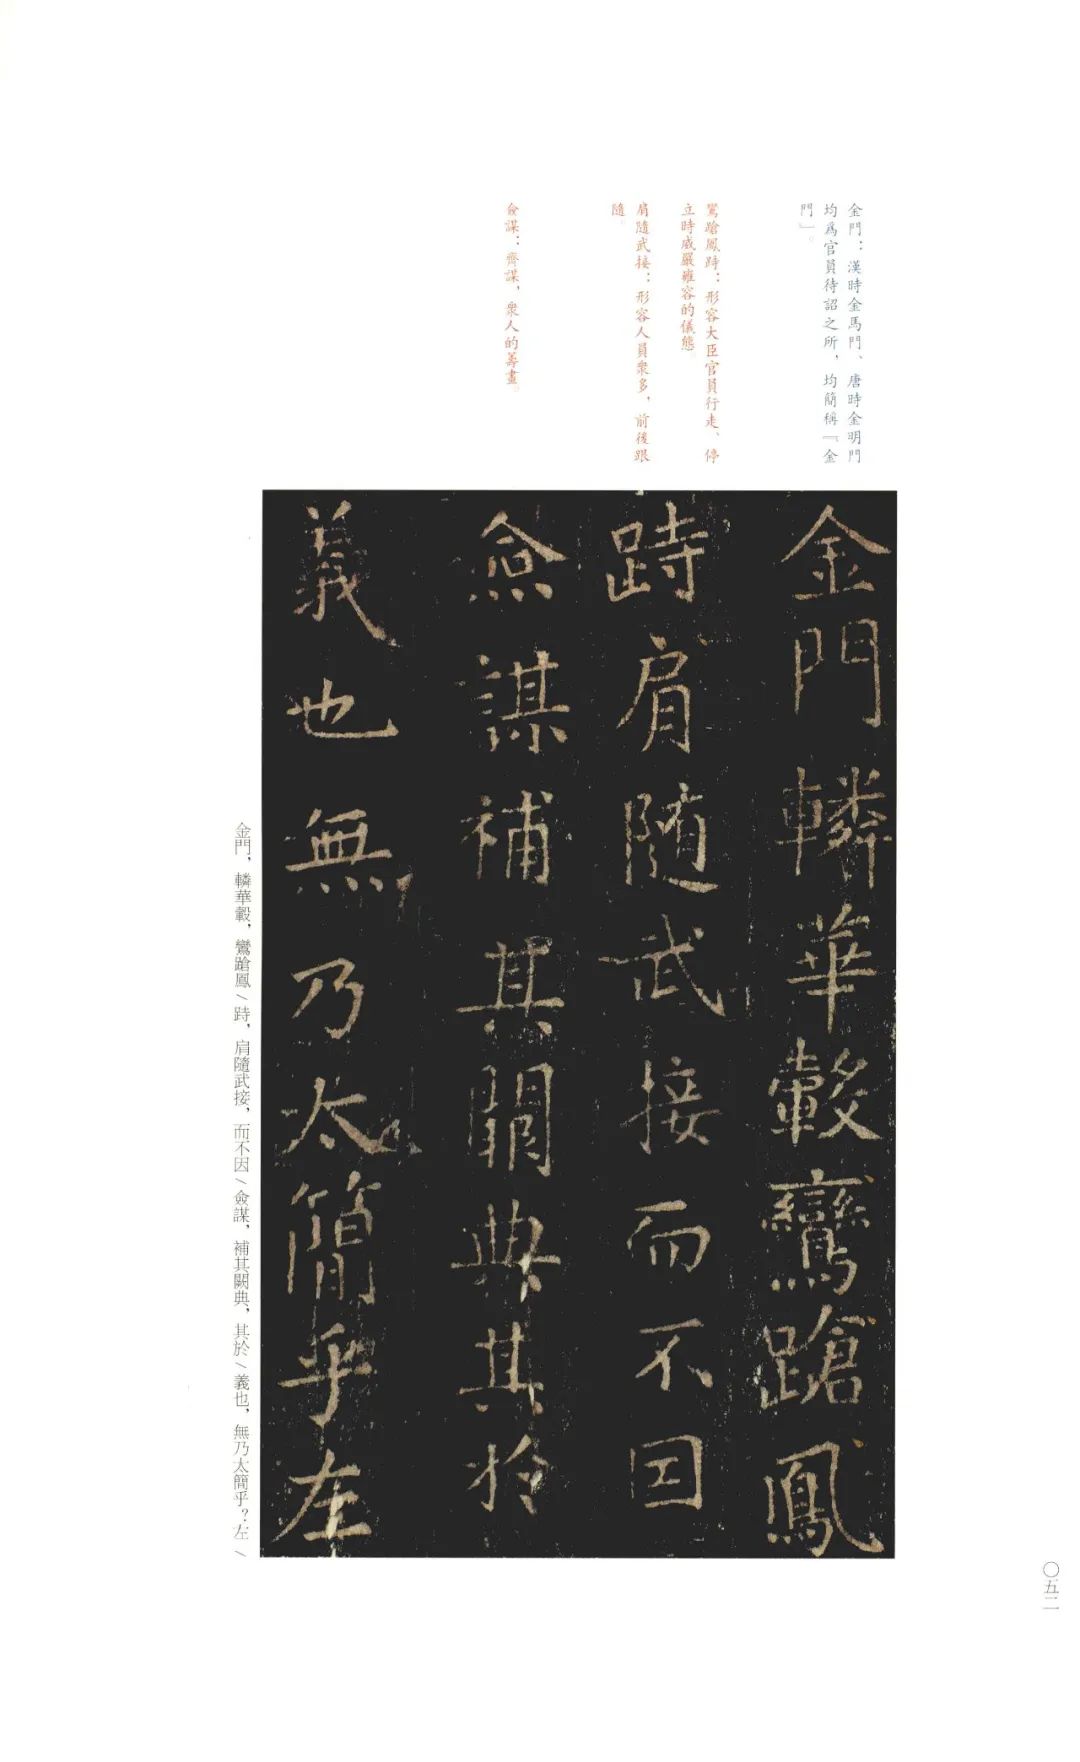 金門：漢時金馬門、唐時金明門
均爲官員待詔之所，均簡稱『金
門』。
鸞蹌鳳跱：形容大臣官員行走、停
立時威嚴雍容的儀態。
肩隨武接：形容人員衆多，前後跟
隨。
僉謀：齊謀，衆人的籌畫。
金門轔華轂鸞蹌鳳
跱肩隨武接而不因
僉謀補其闕典其於
義也無乃太簡乎左
金門，轔華轂，鸞蹌鳳／跱，肩隨武接，而不因／僉謀，補其闕典，其於／義也，無乃太簡乎？左／
〇五二